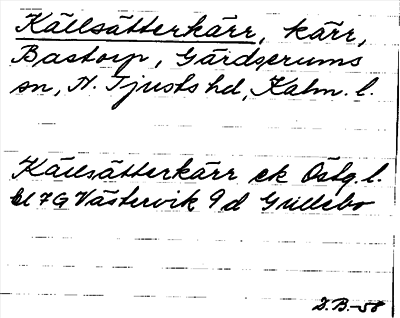 Källsätterkärr, kärr,
Bastorp, Gärdserums
sn, N. Tjusts hd, Kalm. l.
Källsätterkärr ek Östg. l.
bl 7G Västervik 9 d Gullebo
I.B.-58